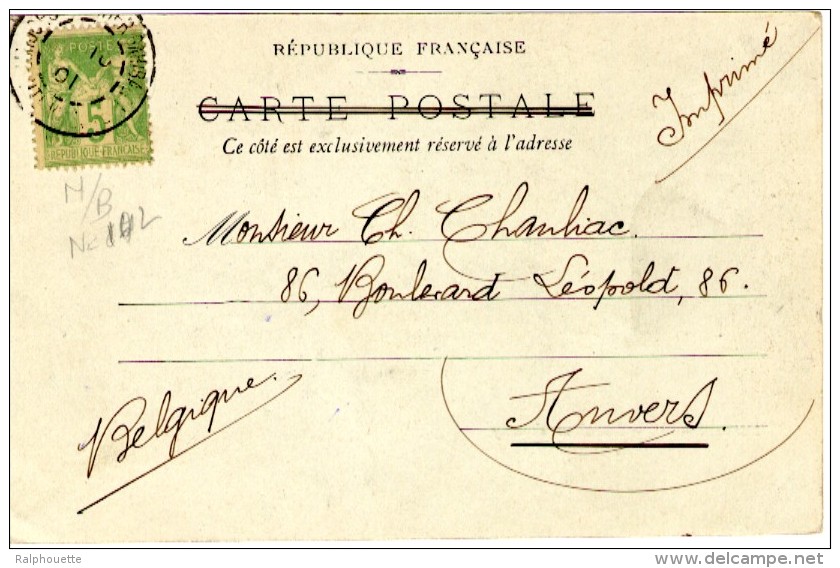 POSTE
5
RÉPUBLIQUE FRANÇAISE
01
RÉPUBLIQUE FRANÇAISE
CARTE POSTALE
Ce côté est exclusivement réservé à l'adresse
Imprimé
N/B
Monsieur Ch. Chauliac.
86, Boulevard Léopold, 86.
Anvers.
Belgique.
Ralphouette
www.delcampe.net